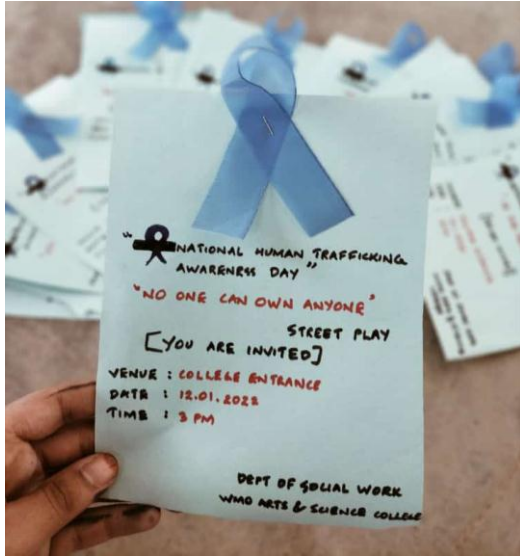 "NATIONAL HUMAN TRAFFICKING
AWARENESS DAY"
"NO ONE CAN OWN ANYONE"
STREET PLAY
[YOU ARE INVITED]
VENUE : COLLEGE ENTRANCE
DATE : 12.01.2022
TIME : 3 PM
DEPT OF SOCIAL WORK
WMO ARTS & SCIENCE COLLEGE